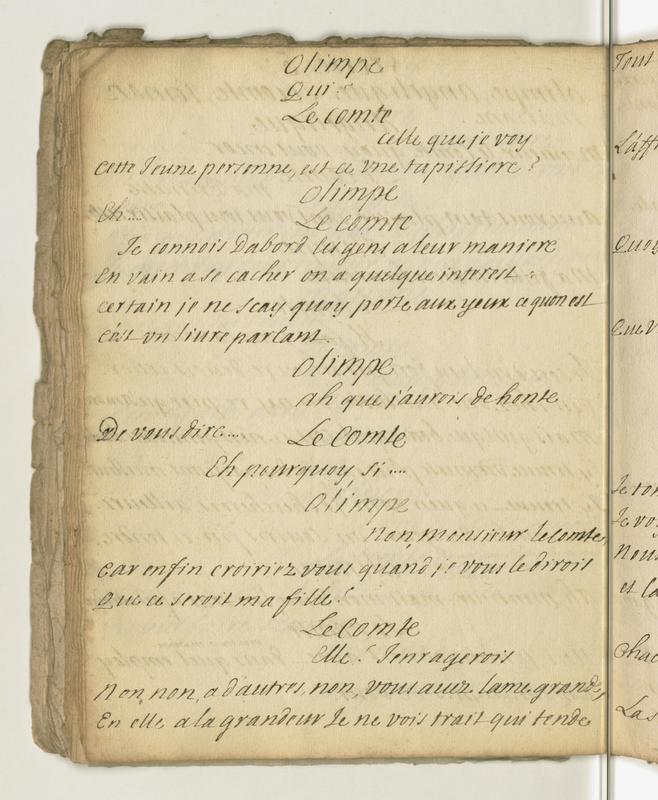 Olimpe
Qui?
Le comte
celle que je voy
cette Jeune personne, est ce vne tapissiere?
Olimpe
Eh....
Le comte
Je connois Dabord les gens a leur maniere
En vain a se cacher on a quelque interest;
certain je ne scay quoy porte aux yeux ce quon est
c'est vn liure parlant.
Olimpe
ah que j'aurois de honte
De vous dire....
Le Comte
Eh pourquoy, si....
Olimpe
non, monsieur le comte,
car enfin croiriez vous quand je vous le dirois
Que ce seroit ma fille?
Le Comte
Elle? J'enragerois
Non, non, a d'autres, non, vous auez lame grande,
En elle a la grandeur Je ne vois trait qui tende
Tout
Laff
Quoy
Que v
Je
Je vo
Nous
et la
Chac
Las